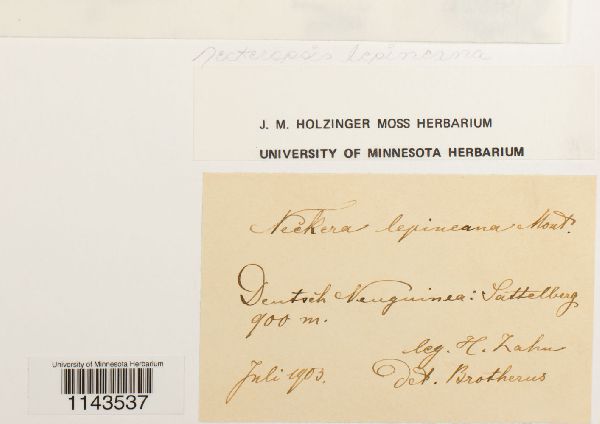 Neckeropsis lepineana
J. M. HOLZINGER MOSS HERBARIUM
UNIVERSITY OF MINNESOTA HERBARIUM
Neckera lepineana Mont.
Deutsch Neuguinea: Sattelberg
900 m.
leg. H. Zahn
Juli 1903.
det. Brotherus
University of Minnesota Herbarium
1143537